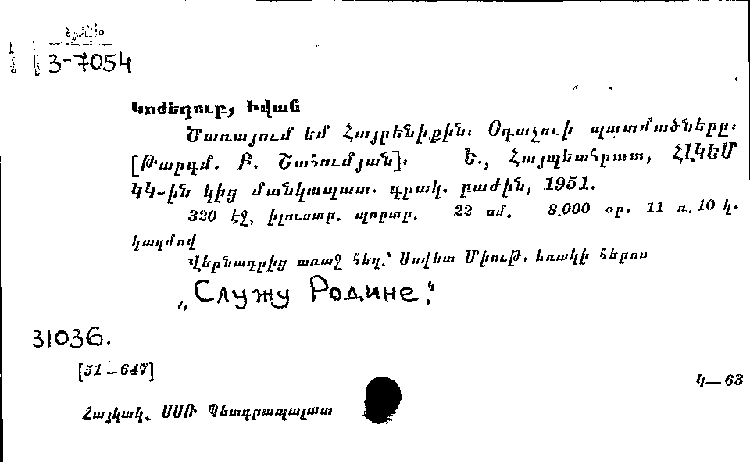 3-7054
Կոժեդուբ, Իվան
Ծառայում եմ Հայրենիքին: Օդաչուի պատմածները:
[Թարգմ. Բ. Շահումյան]: Ե., Հայպետհրատ, ՀԼԿԵՄ
ԿԿ-ին կից մանկապատ. գրակ. բաժին, 1951.
320 էջ, իլուստր. պորտր. 22 սմ. 8.000 օր. 11 ռ. 10 կ.
կազմով
Վերնագրից առաջ հեղ.՝ Սովետ Միութ. եռակի հերոս
„Служу Родине“
31036.
[51-647]
Կ—63
Հայկակ. ՍՍՌ Պետգրապալատ